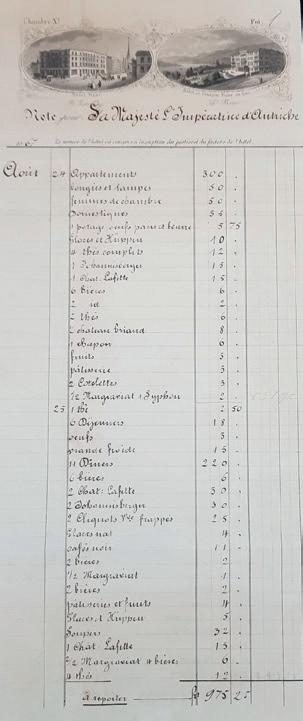 Chambre N°
Fol.
Note pour Sa Majesté L'Impératrice d'Autriche
Août 24 Appartements 300 .
Bougies et lampes 50 .
femmes de chambre 50 .
Domestiques
1 potage, oeufs, pain et beurre 5 75
Glaces et Hüppen 10 .
4 thés complets 12 .
1 Johannisberger 15 .
1 Chat. Lafitte 15 .
6 bières 6 .
2 id 2 .
2 thés 6 .
2 chateau briand 8 .
1 chapon 6 .
fruits 3 .
pâtisserie 2 .
2 Cotelettes 3 .
1/2 Margraviat 1 Syphon 2 .
25 1 thé 2 50
6 Déjeuners 18 .
oeufs 3 .
viande froide 15 .
11 Diners 220 .
6 bières 6 .
2 Chat: Lafitte 30 .
2 Johannisberger 30 .
2 Cliquots Vve frappés 25 .
Glaces nat 4 .
cafés noir 11 .
2 bières 2 .
1/2 Margraviat 1 .
2 bières 2 .
patisseries et fruits 4 .
Glaces et Hüppen 5 .
Soupers 32 .
1 Chat. Lafitte 15 .
2/2 Margraviat 4 bières 6 .
4 thés 12 .
à reporter fr 975 25